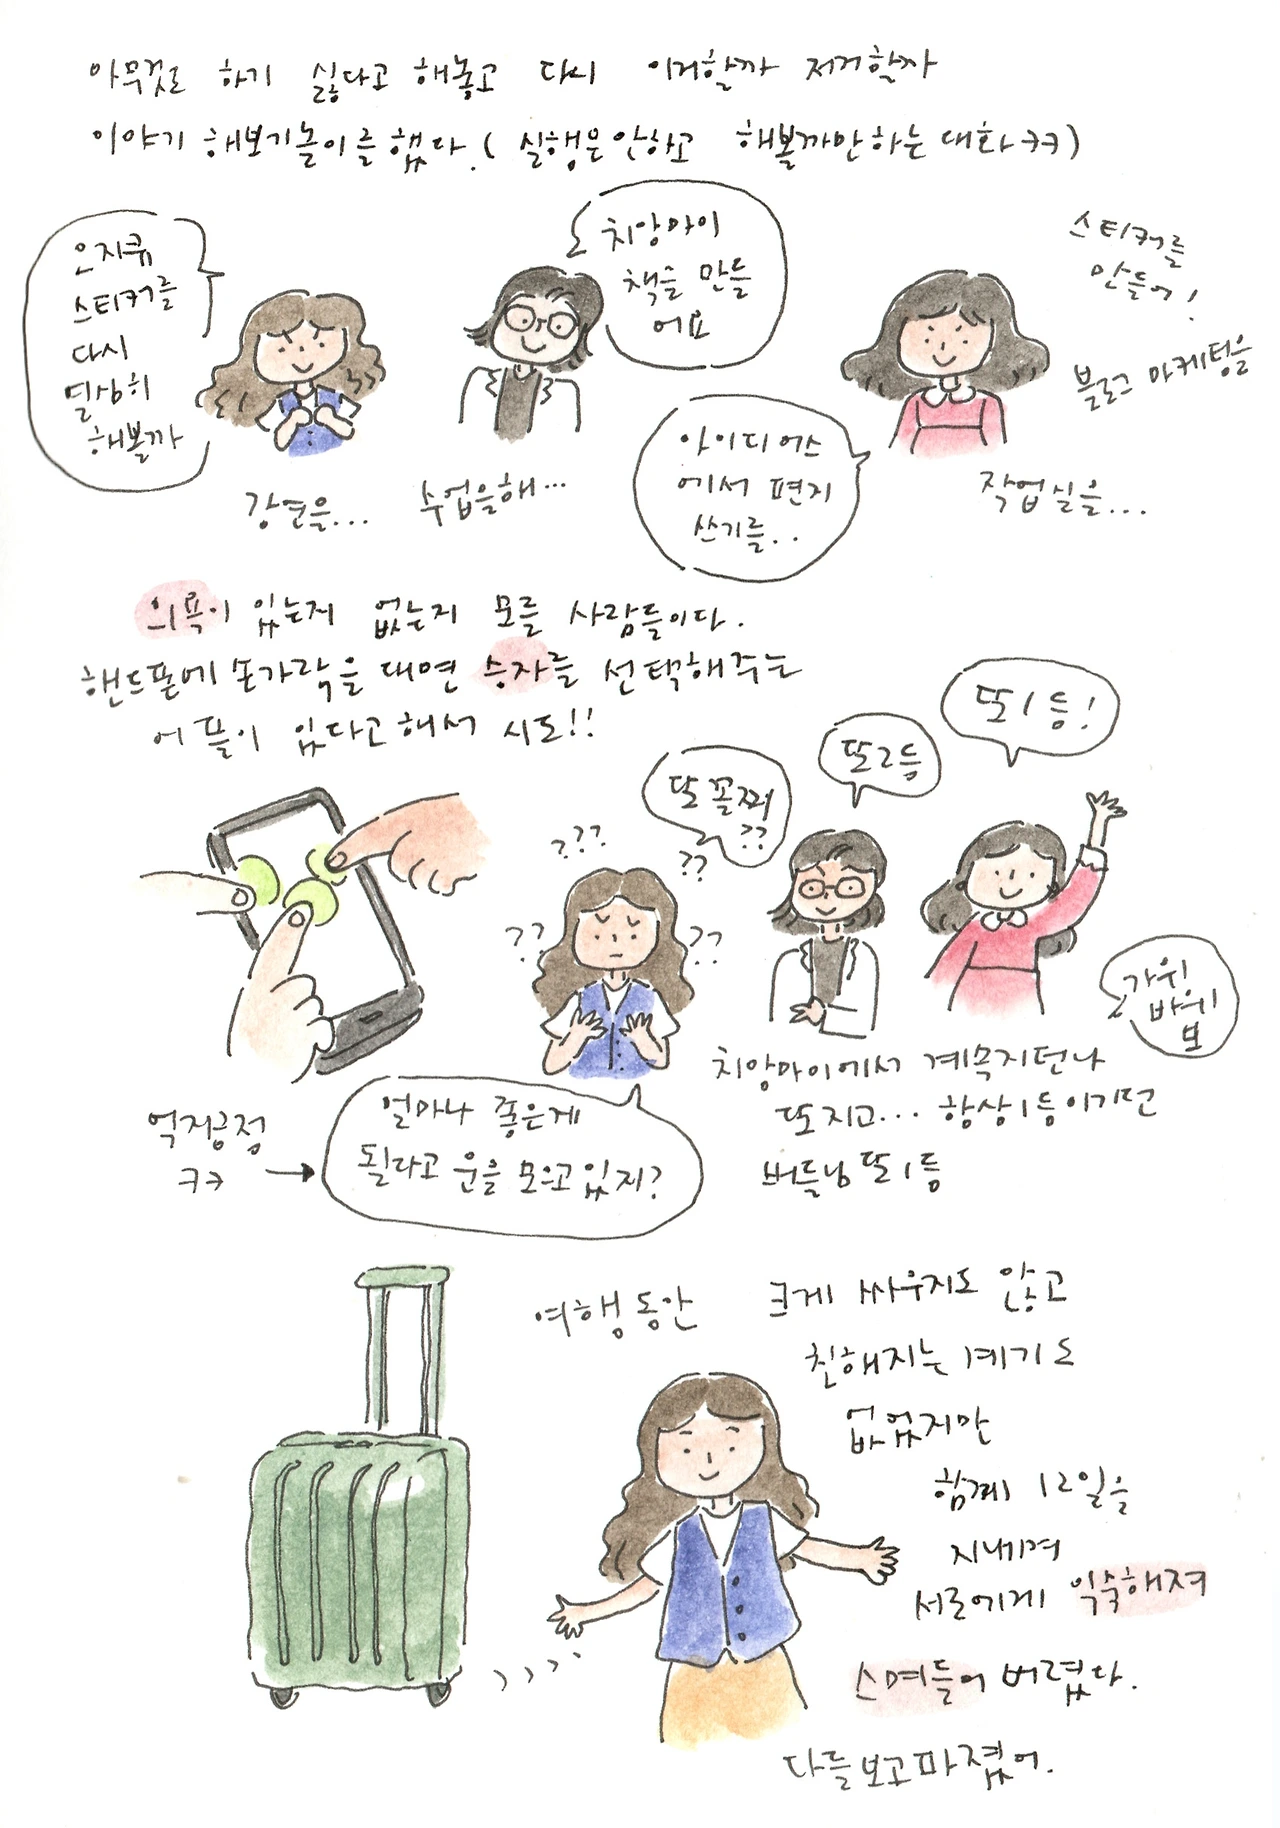 아무것도 하기 싫다고 해놓고 다시 이거할까 저거할까
이야기 해보기놀이를 했다. ( 실행은 안하고 해볼까만 하는 대화 ㅋㅋ )
은지큐
스티커를
다시
열심히
해볼까
강연을...
수업을해...
치앙마이
책을 만들
어요
아이디어스
에서 편지
쓰기를..
스티커를
만들어!
블로그 마케팅을
작업실을...
의욕이 있는지 없는지 모를 사람들이다.
핸드폰에 손가락을 대면 승자를 선택해주는
어플이 있다고 해서 시도!!
???
??
??
또 꼴찌
??
??
또 2등
또 1등!
가위!
바위
보
치앙마이에서 계속지던나
또 지고... 항상 1등이기던
버들님 또 1등
억지긍정
ㅋㅋ
얼마나 좋은게
될라고 운을 모으고 있지?
여행동안 크게 싸우지도 않고
친해지는 계기도
없었지만
함께 12일을
지내며
서로에게 익숙해져
스며들어 버렸다.
다들 보고파졌어.